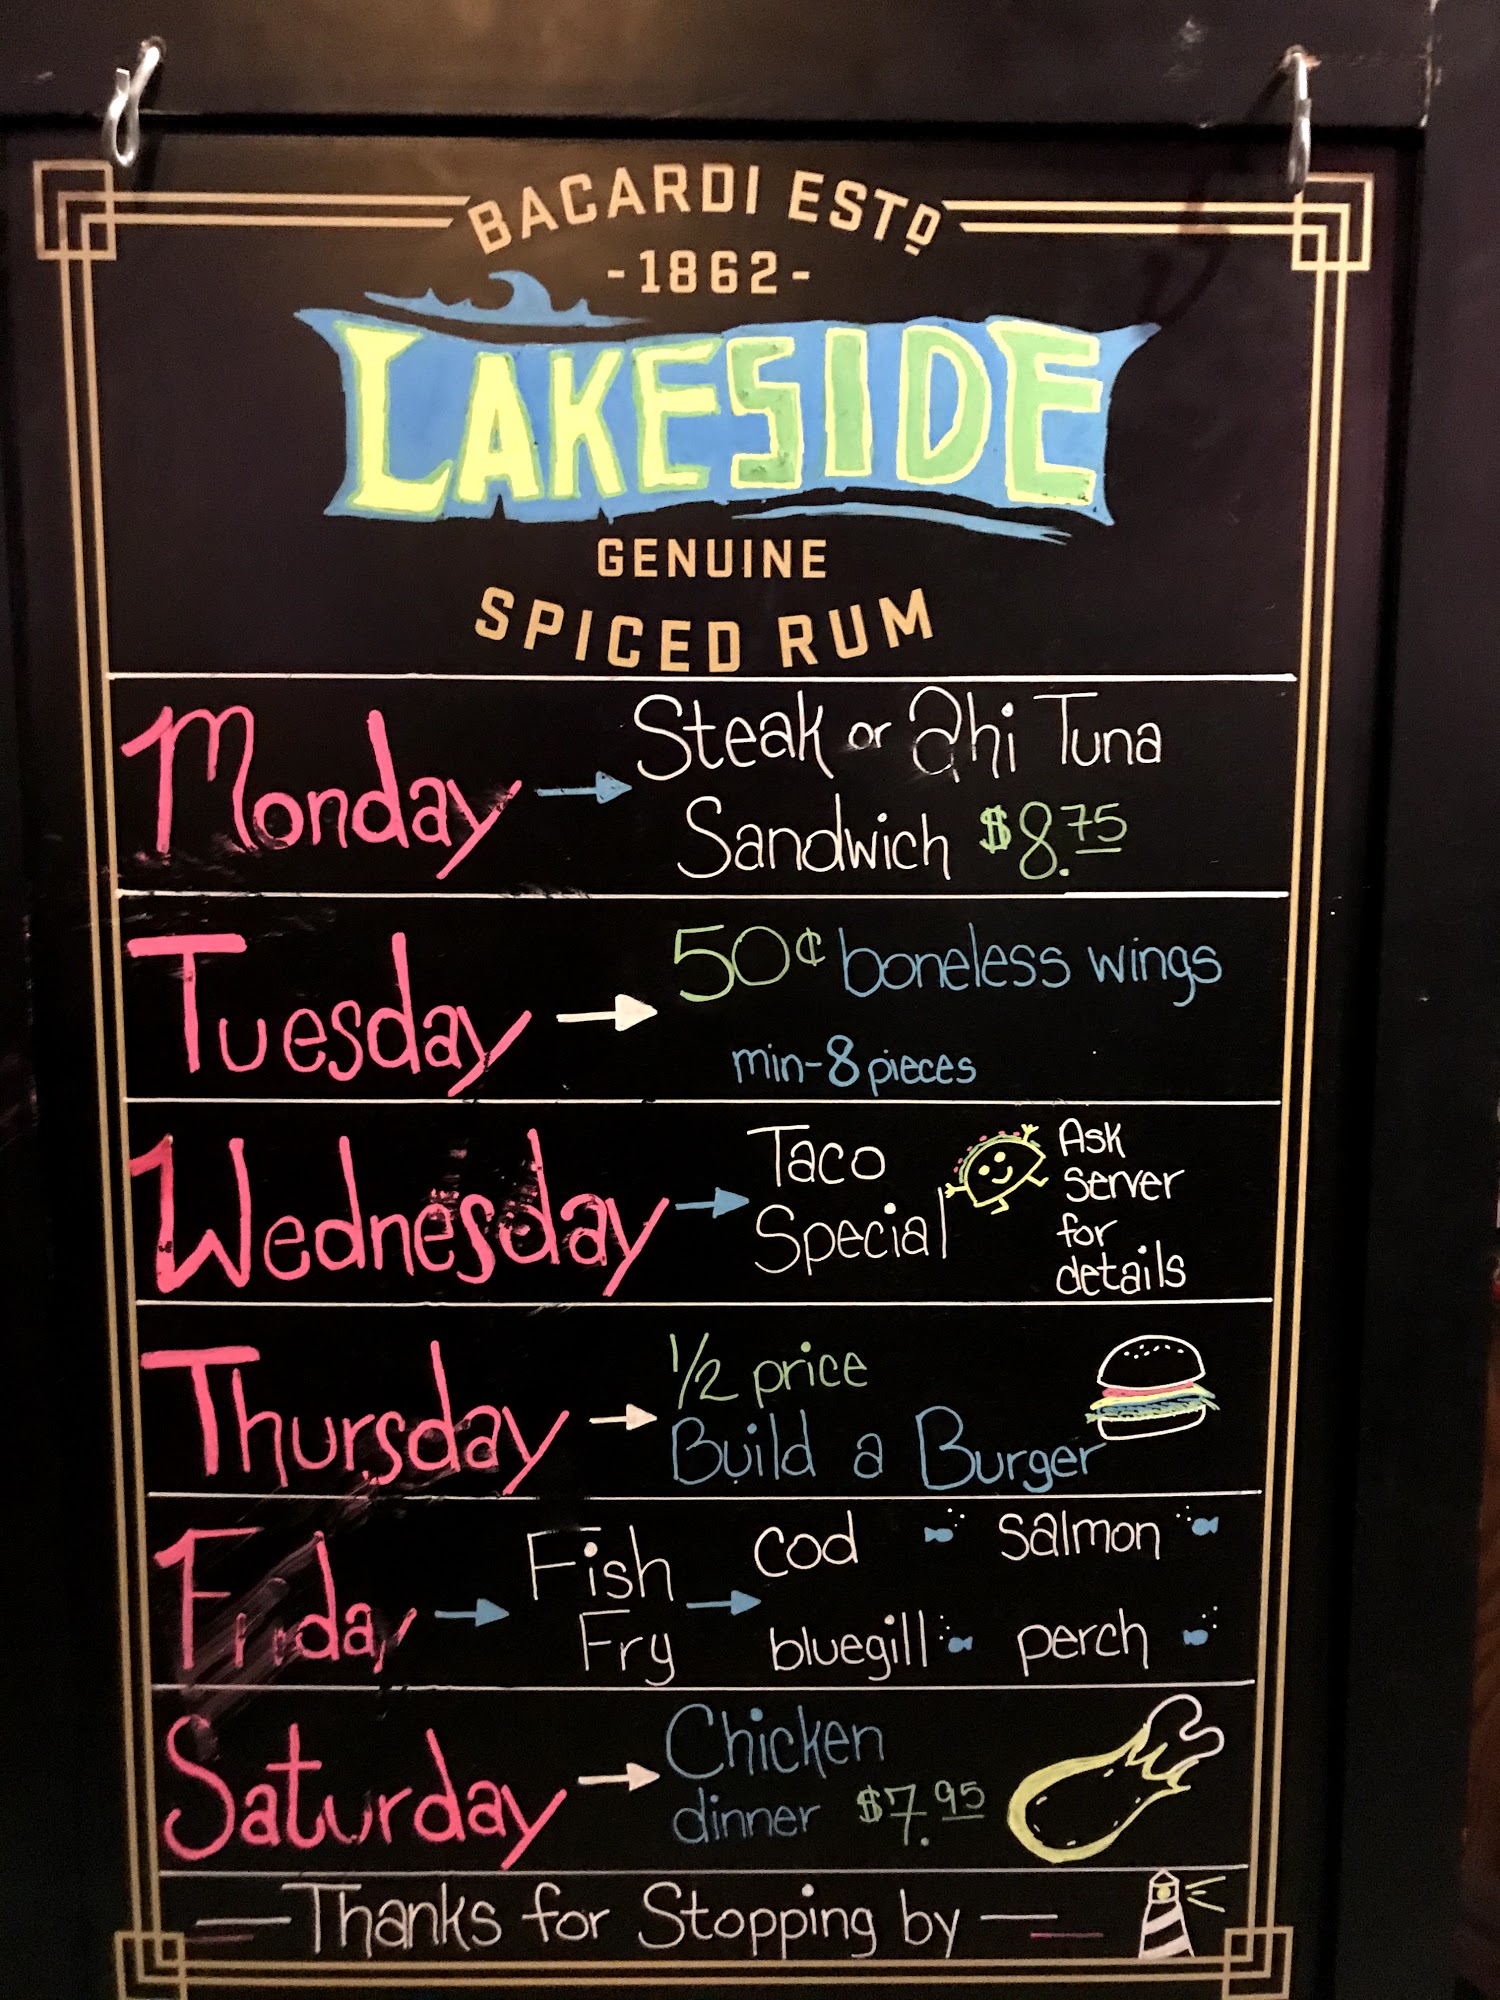 BACARDI ESTD
-1862-
LAKESIDE
GENUINE
SPICED RUM
Monday → Steak or Ahi Tuna
Sandwich $8.75
Tuesday → 50¢ boneless wings
min-8 pieces
Wednesday → Taco
Special
Ask
server
for
details
Thursday → 1/2 price
Build a Burger
Friday → Fish
Fry →
cod salmon
bluegill perch
Saturday → Chicken
dinner $7.95
Thanks for Stopping by